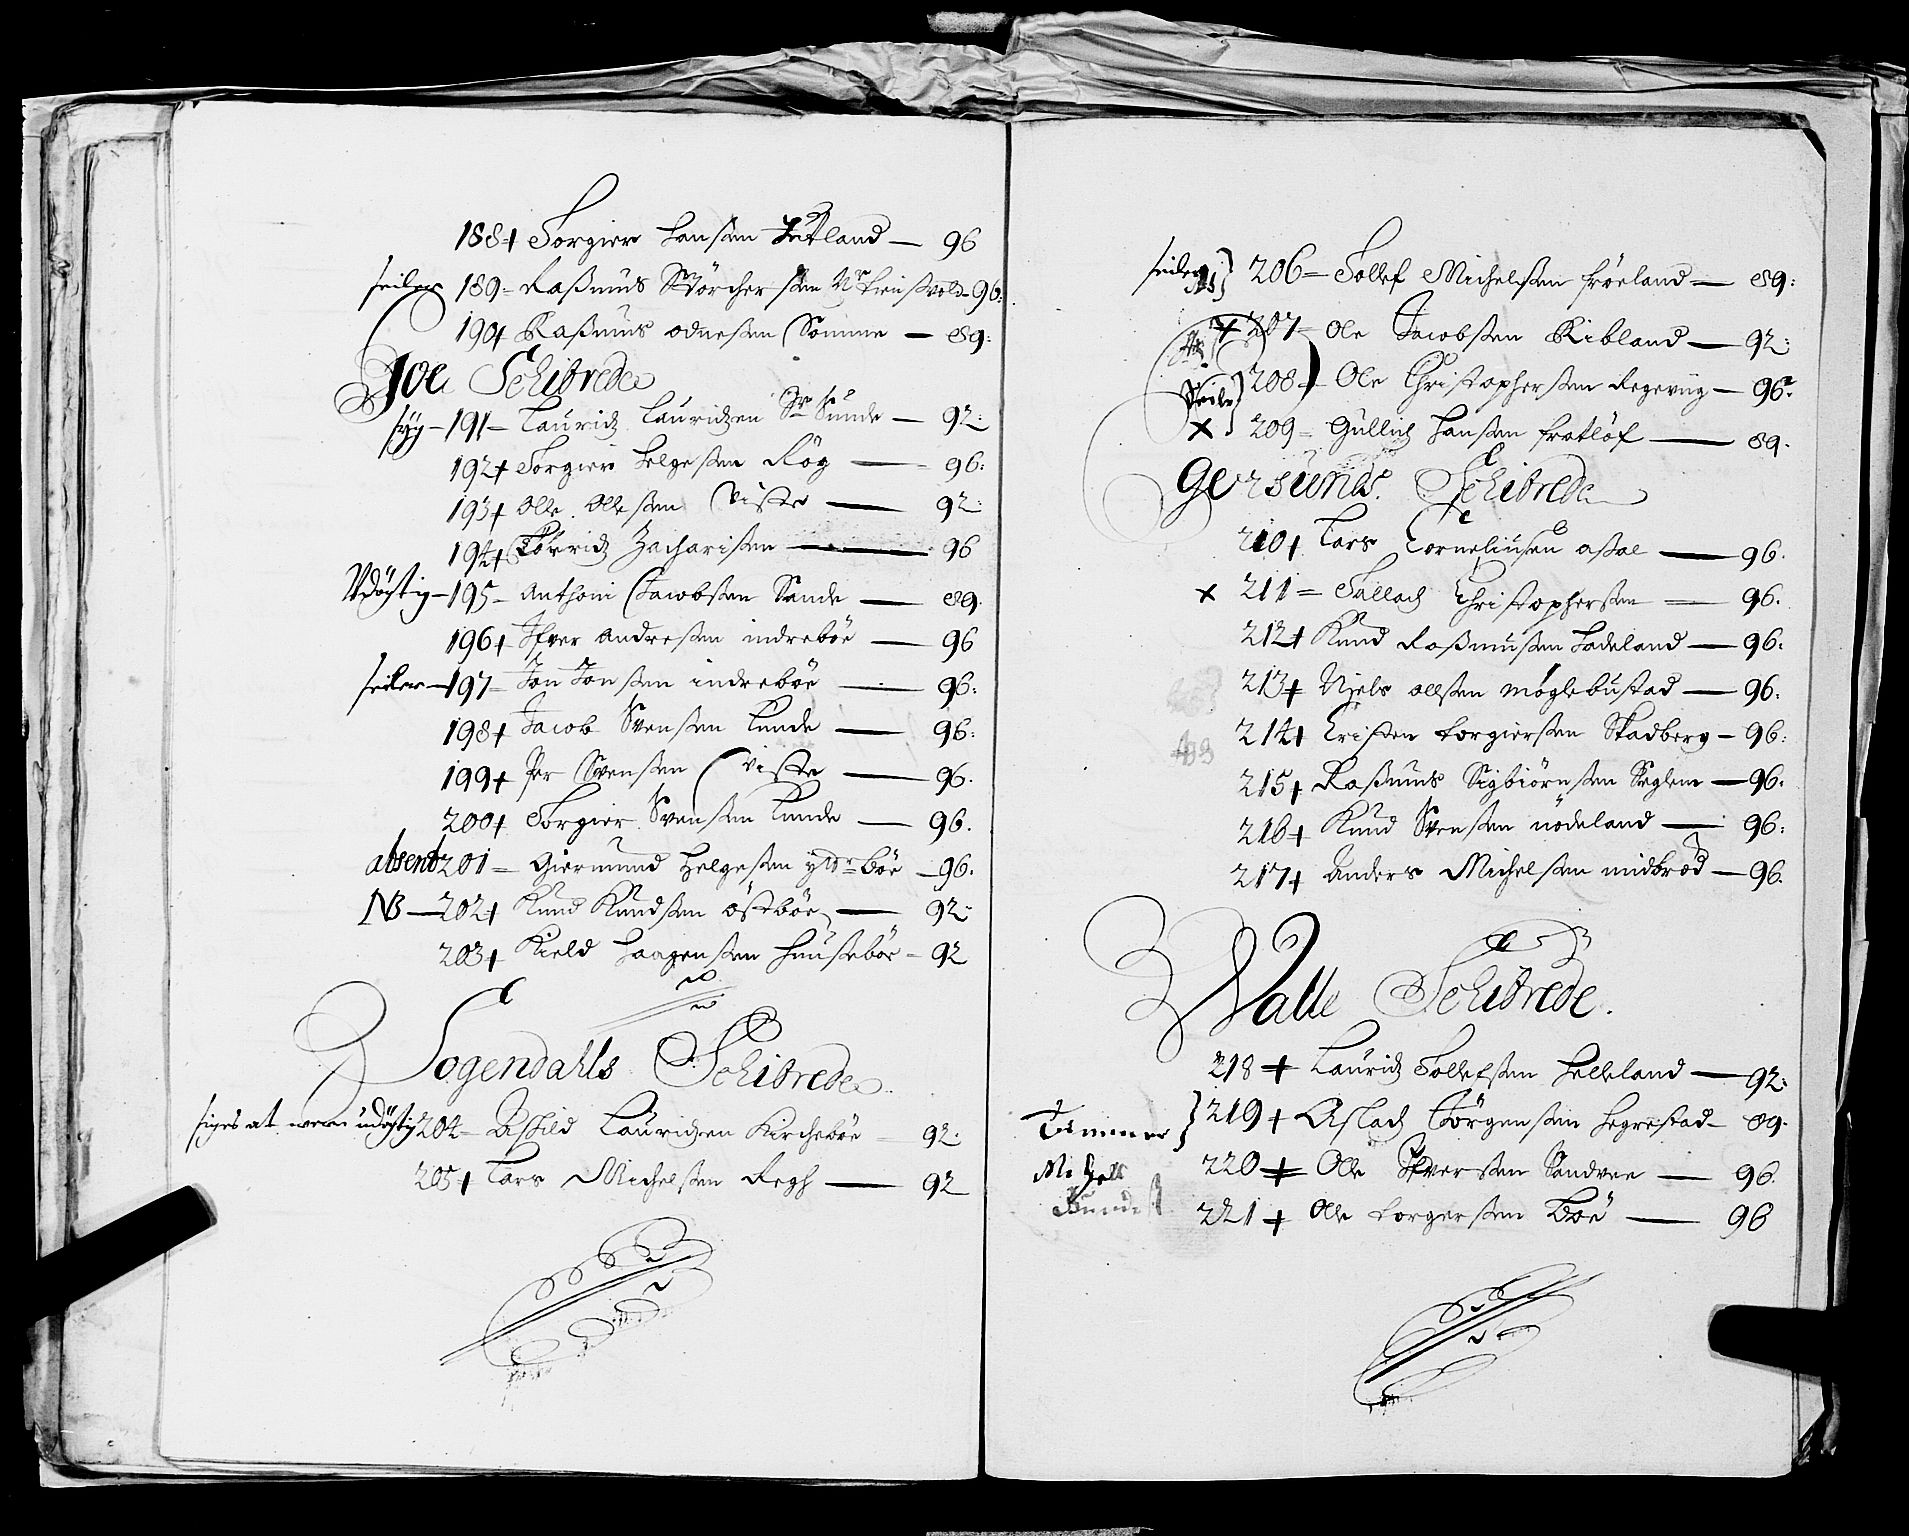 188+ Torgier Hansen Jutland — 96
seiler 189= Rasmus 96:
190+ Rasmus Odnesen Somme — 89:
Joe Schibrede
syg — 191— Lauridz Lauridzen Sunde — 92:
192+ Torgier Helgesen Røg — 96:
193+ Olle Ollesen Viste — 92:
194+ Tørridz Zacharisen — 96
Vdøgtig — 195— Anthoni Jacobsen Sande — 89.
196+ Ifver Andresen indrebøe — 96
seiler — 197— Jon Jonsen indrebøe — 96:
198+ Jacob Svensen Lunde — 96:
199+ Per Svensen Viste — 96.
200+ Torgier Svensen Lunde — 96.
absent 201= Giermund Helgesen Bøe — 96.
NB — 202+ Knud Knudsen østbøe — 92:
203+ Kield Haagensen Huusebøe — 92
Sogendahls Schibrede
siges at were udøgtig 204— Askild Lauridzen Kirchebøe — 92.
205+ Lars Michelsen Regh — 92
seiler 206— Tollef Michelsen Frøeland — 89:
+ 207— Ole Jacobsen Birkland — 92:
seiler 208+ Ole Christophersen Regeviig — 96:
x 209= Gullich Hansen — 89.
Gersunds Schibrede
210+ Lars Corneliusen — 96.
x 211= Tallach Christophersen — 96.
212+ Knud Rasmusen Hadeland — 96.
213+ Niels Ollsen Møglebustad — 96.
214+ Cristen Torgiersen Skadberg — 96:
215+ Rasmus Sigbiørnsen Seglem — 96:
216+ Knud Svensen nødeland — 96:
217+ Anders Michelsen midbrød — 96.
Walle Schibrede.
218+ Lauridz Tollefsen Helleland — 92:
Timmer 219+ Aslach Jørgensen Hegrestad — 89.
220+ Olle Ifversen Sandvee — 96.
221+ Olle Torgersen Bøe — 96